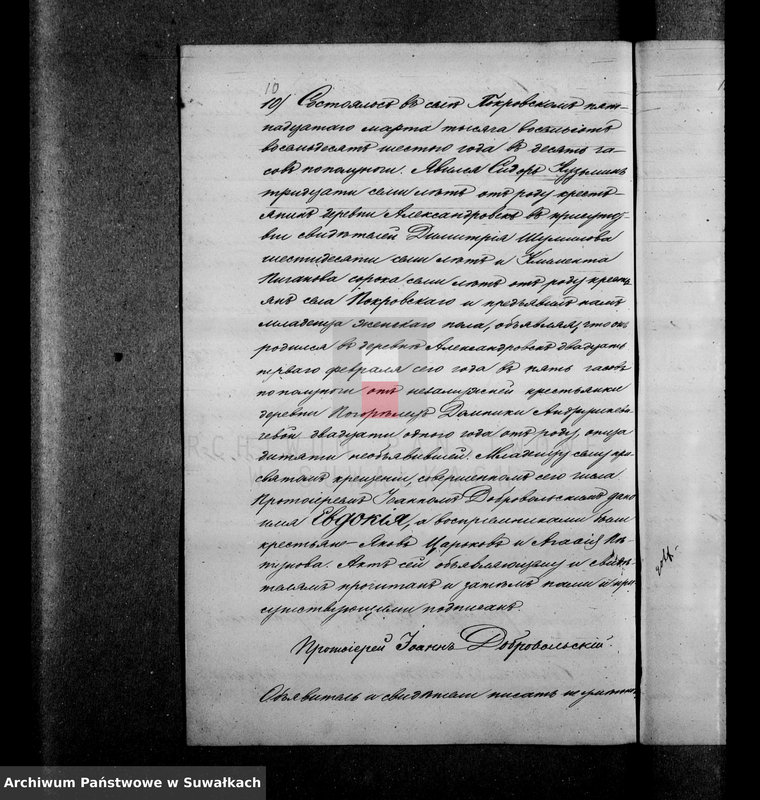 10
10) Состоялось въ селѣ Покровскомъ пят-
надцатаго марта тысяча восемьсотъ
восемьдесятъ шестого года въ десять ча-
совъ пополуночи. Явился Сидоръ Кузьминъ
тридцати семи лѣтъ отъ роду кресть-
янинъ деревни Александровскъ въ присутст-
віи свидѣтелей Димитрія Шумилова
шестидесяти семи лѣтъ и Климента
сорока семи лѣтъ отъ роду крест-
янъ села Покровскаго и предъявилъ намъ
младенца женскаго пола, объявляя, что онъ
родился въ деревнѣ Александровскѣ двадцать
перваго февраля сего года въ пять часовъ
пополуночи отъ незамужней крестьянки
деревни Погорѣлецъ Домники
двадцати одного года отъ роду, отца
дитяти необъявившей. Младенцу сему при
святомъ крещеніи, совершенномъ сего числа
Протоіереемъ Іоанномъ Добровольскимъ дано
имя Евдокія, а воспріемниками были
крестьяне Яковъ Царьковъ и Агафія
Актъ сей объявляющему и свидѣ-
телямъ прочитанъ и затѣмъ нами и при-
сутствующими подписанъ.
Протоіерей Іоаннъ Добровольскій.
Объявитель и свидѣтели писать не умѣютъ.
ARCHIWUM PAŃSTWOWE
W SUWAŁKACH
Archiwum Państwowe w Suwałkach